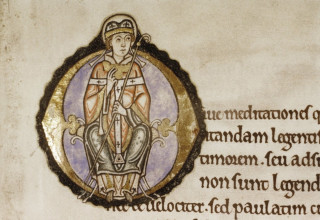 iue meditationes q
itandam legentis
timorem . seu ad s
non sunt legend
uelociter . sed paulatim cu